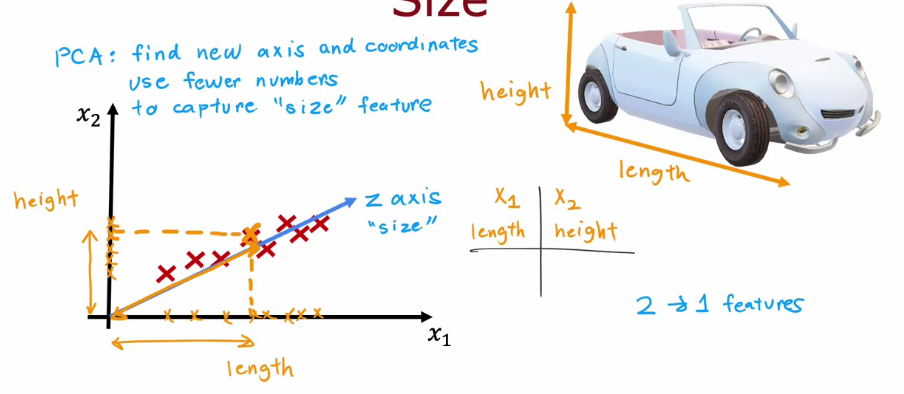 Size
PCA: find new axis and coordinates
use fewer numbers
to capture "size" feature
height
length
x₂
height
z axis
"size"
x₁
length
X₁ X₂
length height
2 → 1 features